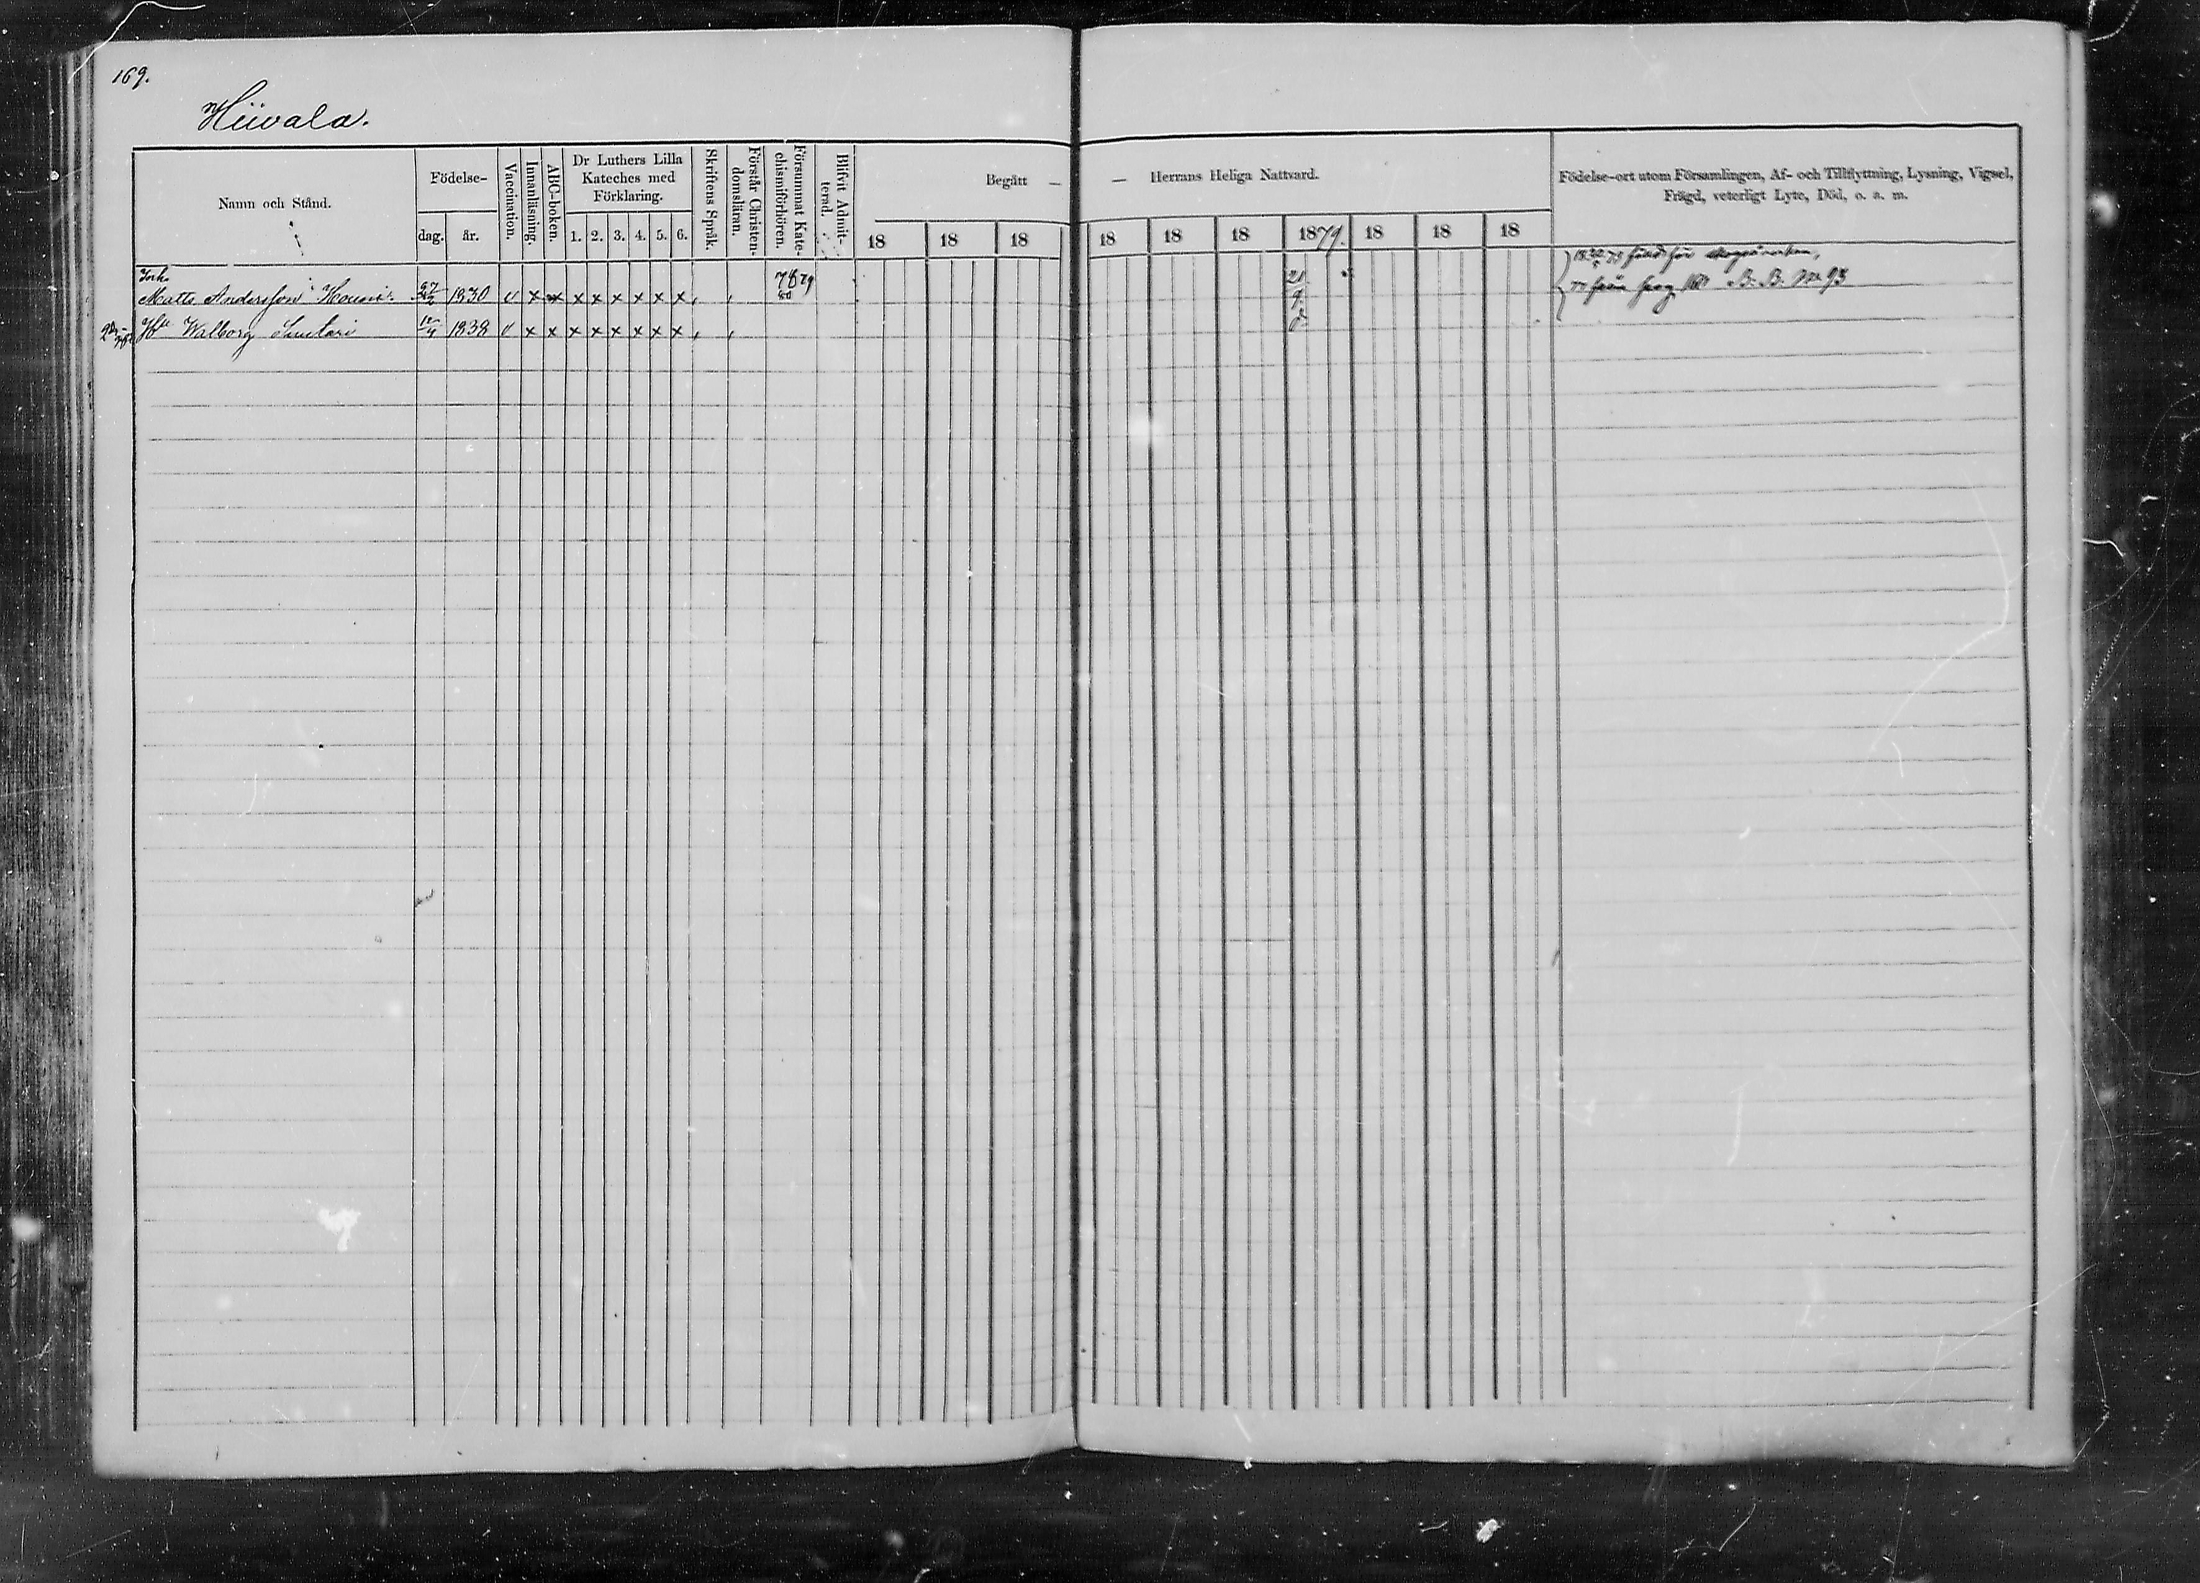 169.
Hiivala.
Namn och Stånd.
Födelse-
dag.
år.
Vaccination.
Innanläsning.
ABC-boken.
Dr Luthers Lilla
Kateches med
Förklaring.
1. 2. 3. 4. 5. 6.
Skriftens Språk.
Förstår Christen-
domsläran.
Försummat Kate-
chismiförhören.
Blifvit Admit-
terad.
Begått —
— Herrans Heliga Nattvard.
18 18 18
18 18 18 1879. 18 18 18
Födelse-ort utom Församlingen, Af- och Tillflyttning, Lysning, Vigsel,
Frägd, veterligt Lyte, Död, o. a. m.
Matts Andersson 1830 v x x x x x x x x
78 79
80
Walborg 1838 v x x x x x x x x
B. B. No 93